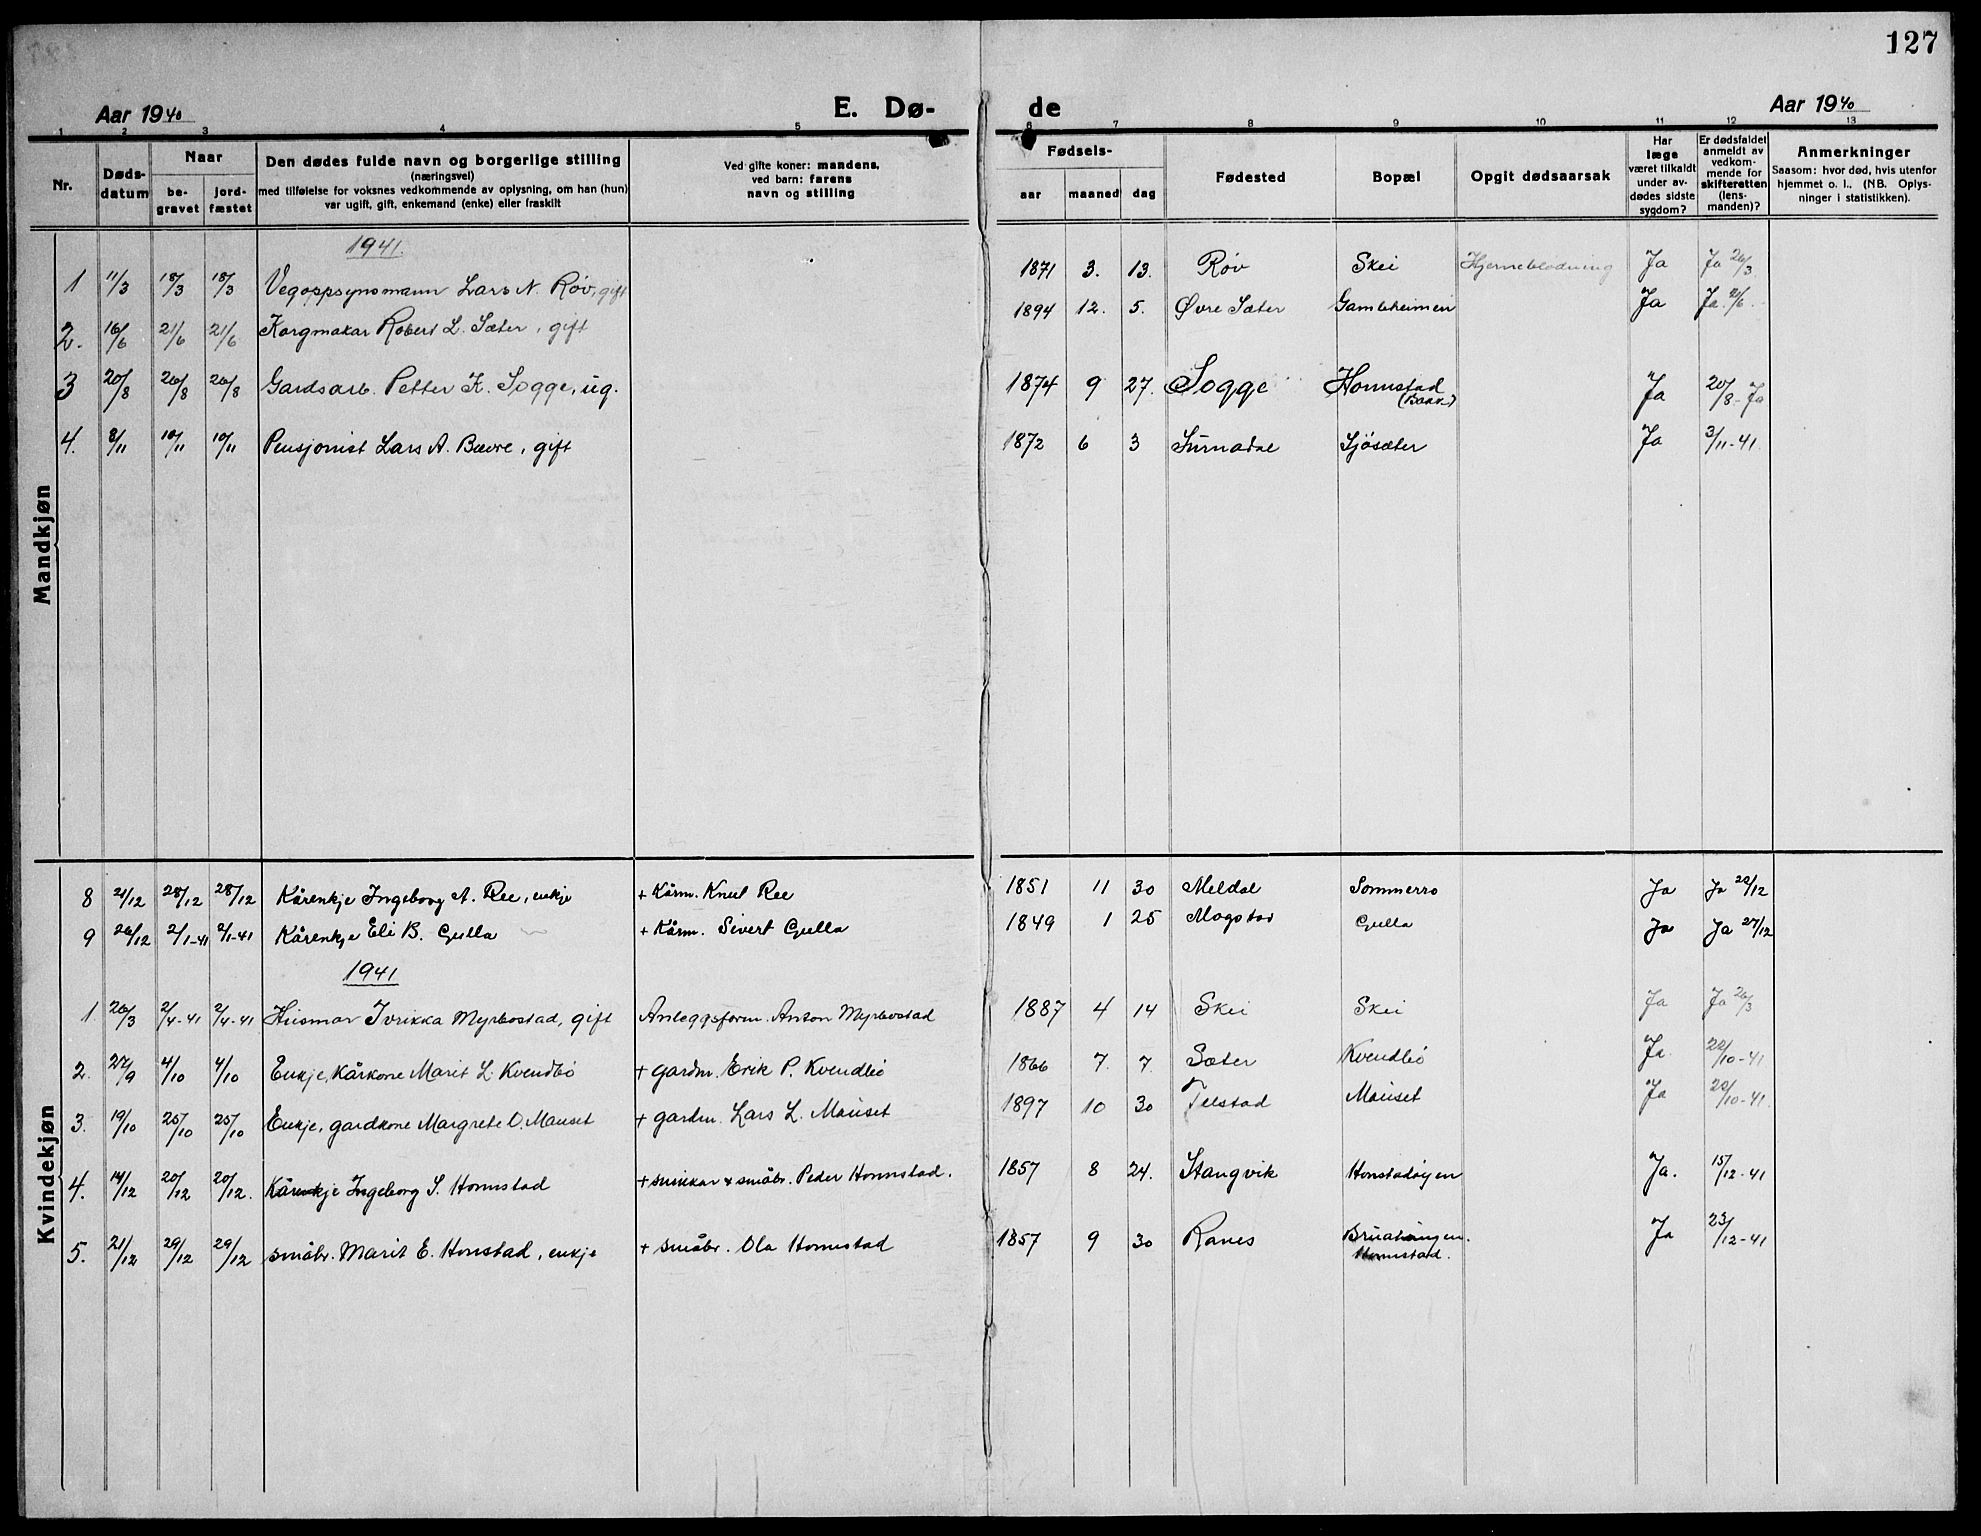 127
Aar 1940 E. Dø- de Aar 1940
1 2 3 4 5 6 7 8 9 10 11 12 13
Nr. | Døds-datum | Naar be-gravet | jord-fæstet | Den dødes fulde navn og borgerlige stilling (næringsvei) med tilføielse for voksnes vedkommende av oplysning, om han (hun) var ugift, gift, enkemand (enke) eller fraskilt | Ved gifte koner: mandens, ved barn: farens navn og stilling | Fødsels- aar | maaned | dag | Fødested | Bopæl | Opgit dødsaarsak | Har læge været tilkaldt under av-dødes sidste sygdom? | Er dødsfaldet anmeldt av vedkom-mende for skifteretten (lens-manden)? | Anmerkninger Saasom: hvor død, hvis utenfor hjemmet o. l.. (NB. Oplys-ninger i statistikken).
Mandkjøn
1941.
1 11/3 18/3 18/3 Vegoppsynsmann Lars N. Røv, gift 1871 3. 13. Røv Skei Hjerneblødning Ja Ja 26/3
2. 16/6 21/6 21/6 Korgmakar Robert L. Sæter, gift 1894 12. 5. Øvre Sæter Gamleheimen Ja Ja 21/6.
3 20/8 26/8 26/8 Gardsarb. Petter K. Sogge, ug. 1874 9 27. Sogge Homnstad Ja 20/8 - Ja
4. 8/11 10/11 10/11 Pensjonist Lars A. Bævre, gift 1872 6 3 Surnadal Sjøsæter Ja 3/11-41
Kvindekjøn
8 21/12 28/12 28/12 Kårenkje Ingeborg A. Ree, enkje + Kårm. Knut Ree 1851 11 30 Meldal Sommerro Ja Ja 20/12
9 26/12 2/1-41 2/1-41 Kårenkje Eli B. Gulla + Kårm. Sivert Gulla 1849 1 25 Mogstad Gulla Ja Ja 27/12
1941
1 26/3 2/4-41 2/4-41 Husmor Ivrikka Myrbostad, gift Anleggsform. Anton Myrbostad 1887 4 14 Skei Skei Ja Ja 26/3
2. 27/9 4/10 4/10 Enkje, Kårkone Marit L. Kvendbö + gardm. Erik P. Kvendbö 1866 7. 7. Sæter Kvendbö Ja 22/10-41
3. 19/10 25/10 25/10 Enkje, gardkone Margrete O. Mauset + gardm. Lars L. Mauset 1897 10 30 Telstad Mauset Ja 20/10-41.
4. 14/12 20/12 20/12. Kårenkje Ingeborg S. Homnstad + snikkar & småbr. Peder Homnstad. 1857 8 24. Stangvik Honstadöyen Ja. 15/12-41
5. 21/12 29/12 29/12 småbr. Marit E. Honstad, enkje + småbr. Ola Homnstad 1857 9 30 Ranes Homnstad. Ja 23/12-41